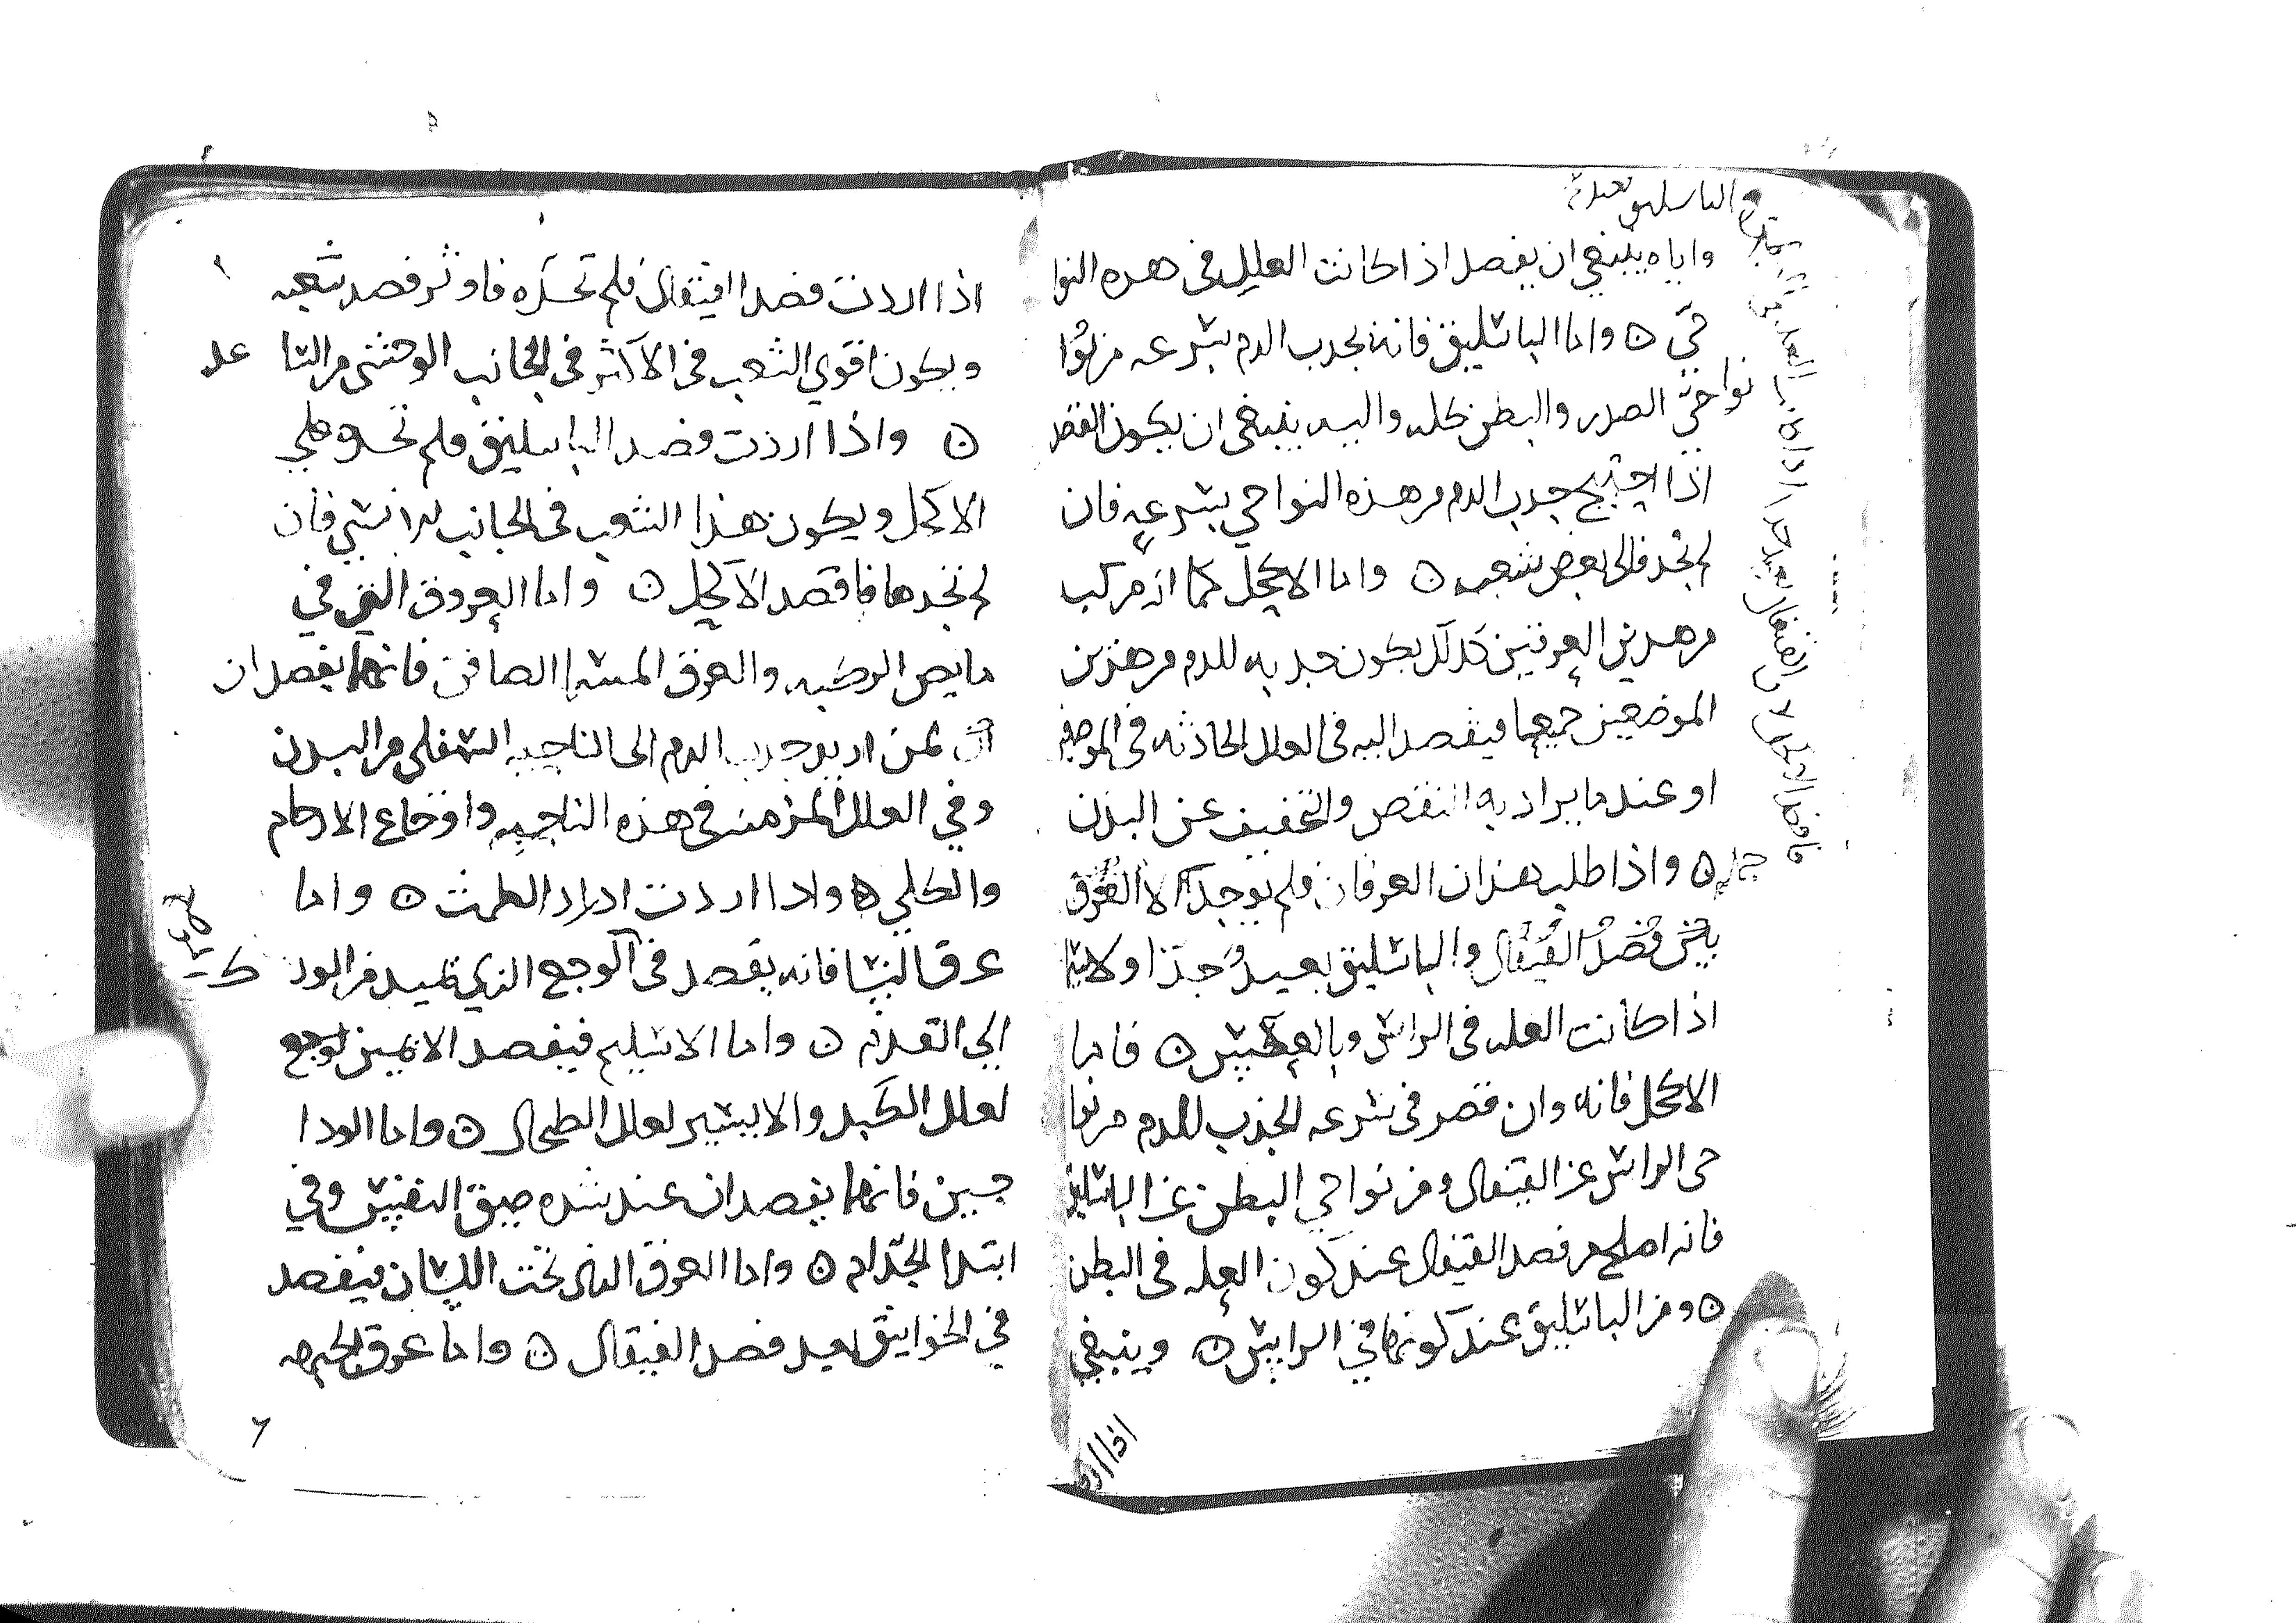 واياه ينبغي ان يفصد اذا كانت العلل في هذه النوا
حي ه واما الباسليق فانه يجذب الدم بسرعه من نوا
نواحي الصدر والبطن كله واليه ينبغي ان يكون القصد
اذا احتيج جذب الدم من هذه النواحي بسرعه فان
لم تجد فالى بعض شعبه ه واما الاكحل كما انه مركب
من هذين العرقين كذلك يكون جذبه للدم من هذين
الموضعين جميعا فيقصد اليه في العلل الحادثه في الموضعين
او عند ما يراد به النقص والتخفيف عن البدن
جمله ه واذا طلب هذان العرقان فلم يوجد الا العرق
فصد القيفال والباسليق بعيد جدا ولا سيما
اذا كانت العله في الراس وبالعكس ه فاما
الاكحل فانه وان قصر في سرعه الجذب للدم من نوا
حي الراس عن القيفال ومن نواحي البطن عن الباسليق
فانه اصلح من فصد القيفال عند كون العله في البطن
ه ومن الباسليق عند كونها في الراس ه وينبغي
اذا اردت
اذا اردت فصد القيفال فلم تجده فاوثر فصد شعبه
ويكون اقوي الشعب في الاكثر في الجانب الوحشي من السا عد
ه واذا اردت فصد الباسليق فلم تجده فلي
الاكحل ويكون هذا الشعب في الجانب الانسي فان
لم تجدها فاقصد الاكحل ه واما العروق التي في
مابض الركبه والعرق المسما الصافن فانهما يفصدان
لمن اريد جذب الدم الى الناحيه السفلى من البدن
وفي العلل المزمنه في هذه الناحيه واوجاع الارحام
والكلي ه واذا اردت ادرار الطمث ه واما
عرق النسا فانه يفصد في الوجع الذي يمتد من الورك
الي القدم ه واما الاسيلم فيفصد الايمن لوجع
لعلل الكبد والايسر لعلل الطحال ه واما الودا
جين فانهما يفصدان عند شده ضيق النفس وفي
ابتدا الجذام ه واما العرق الذي تحت اللسان فيفصد
في الخوانيق بعد فصد القيفال ه واما عرق الجبهه
٦